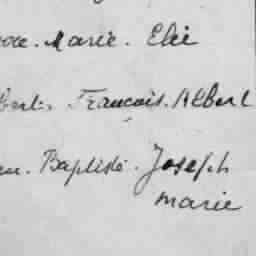 Marie. Elie
François. Albert
Baptiste. Joseph
marie